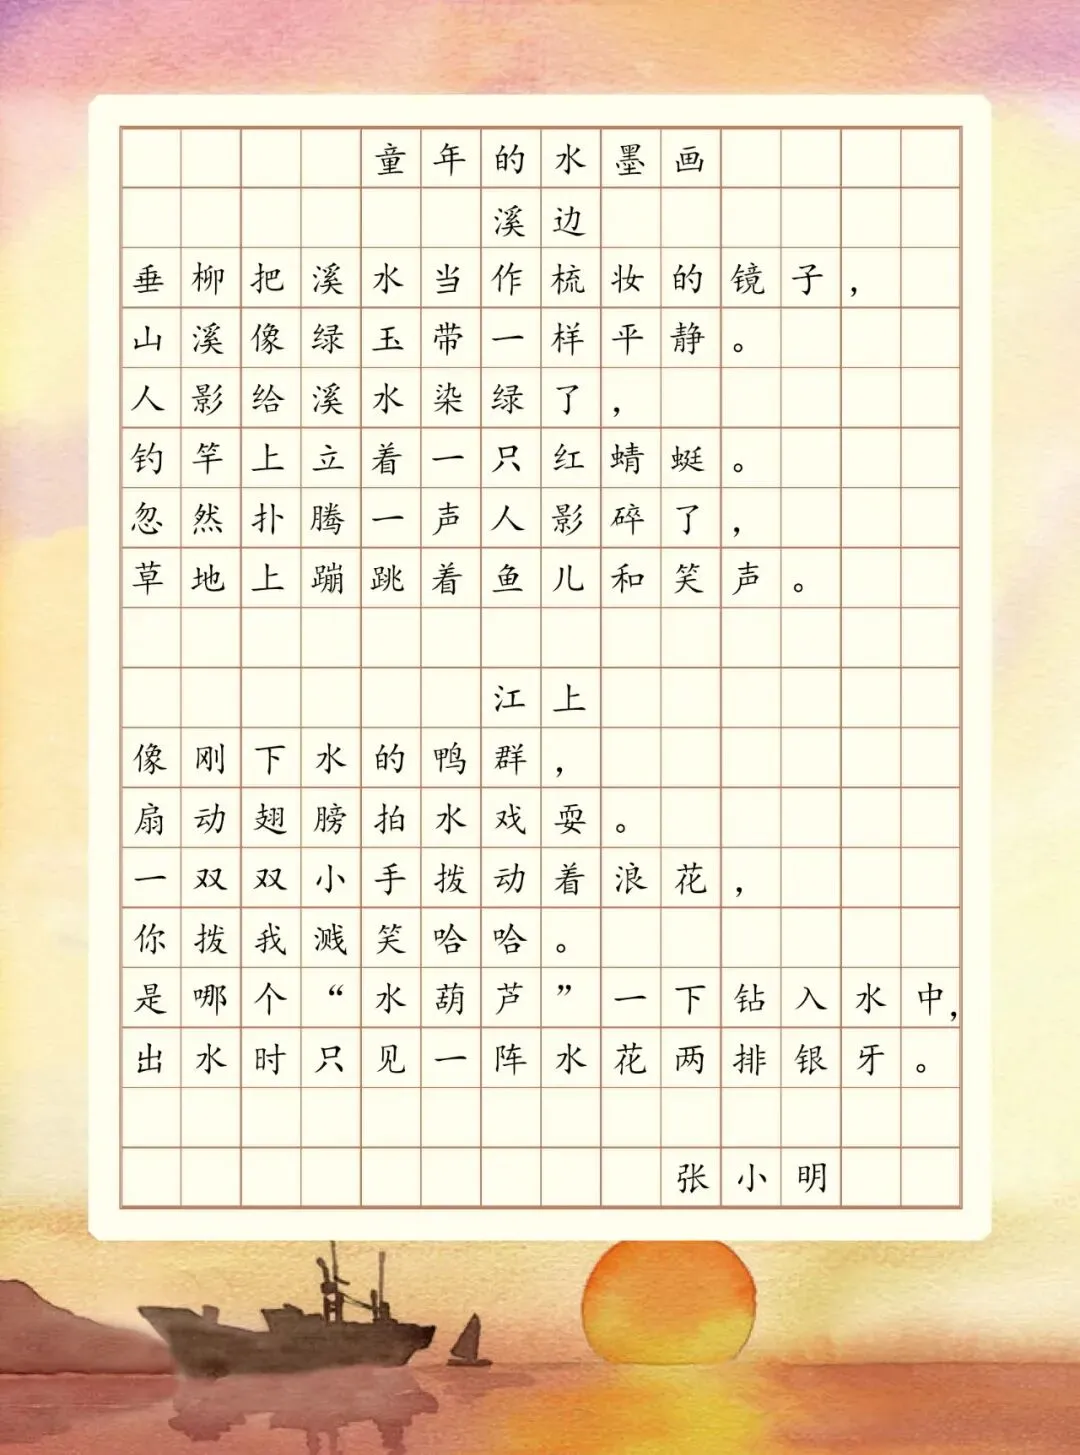 童年的水墨画
溪边
垂柳把溪水当作梳妆的镜子，
山溪像绿玉带一样平静。
人影给溪水染绿了，
钓竿上立着一只红蜻蜓。
忽然扑腾一声人影碎了，
草地上蹦跳着鱼儿和笑声。
江上
像刚下水的鸭群，
扇动翅膀拍水戏耍。
一双双小手拨动着浪花，
你拨我溅笑哈哈。
是哪个“水葫芦”一下钻入水中，
出水时只见一阵水花两排银牙。
张小明